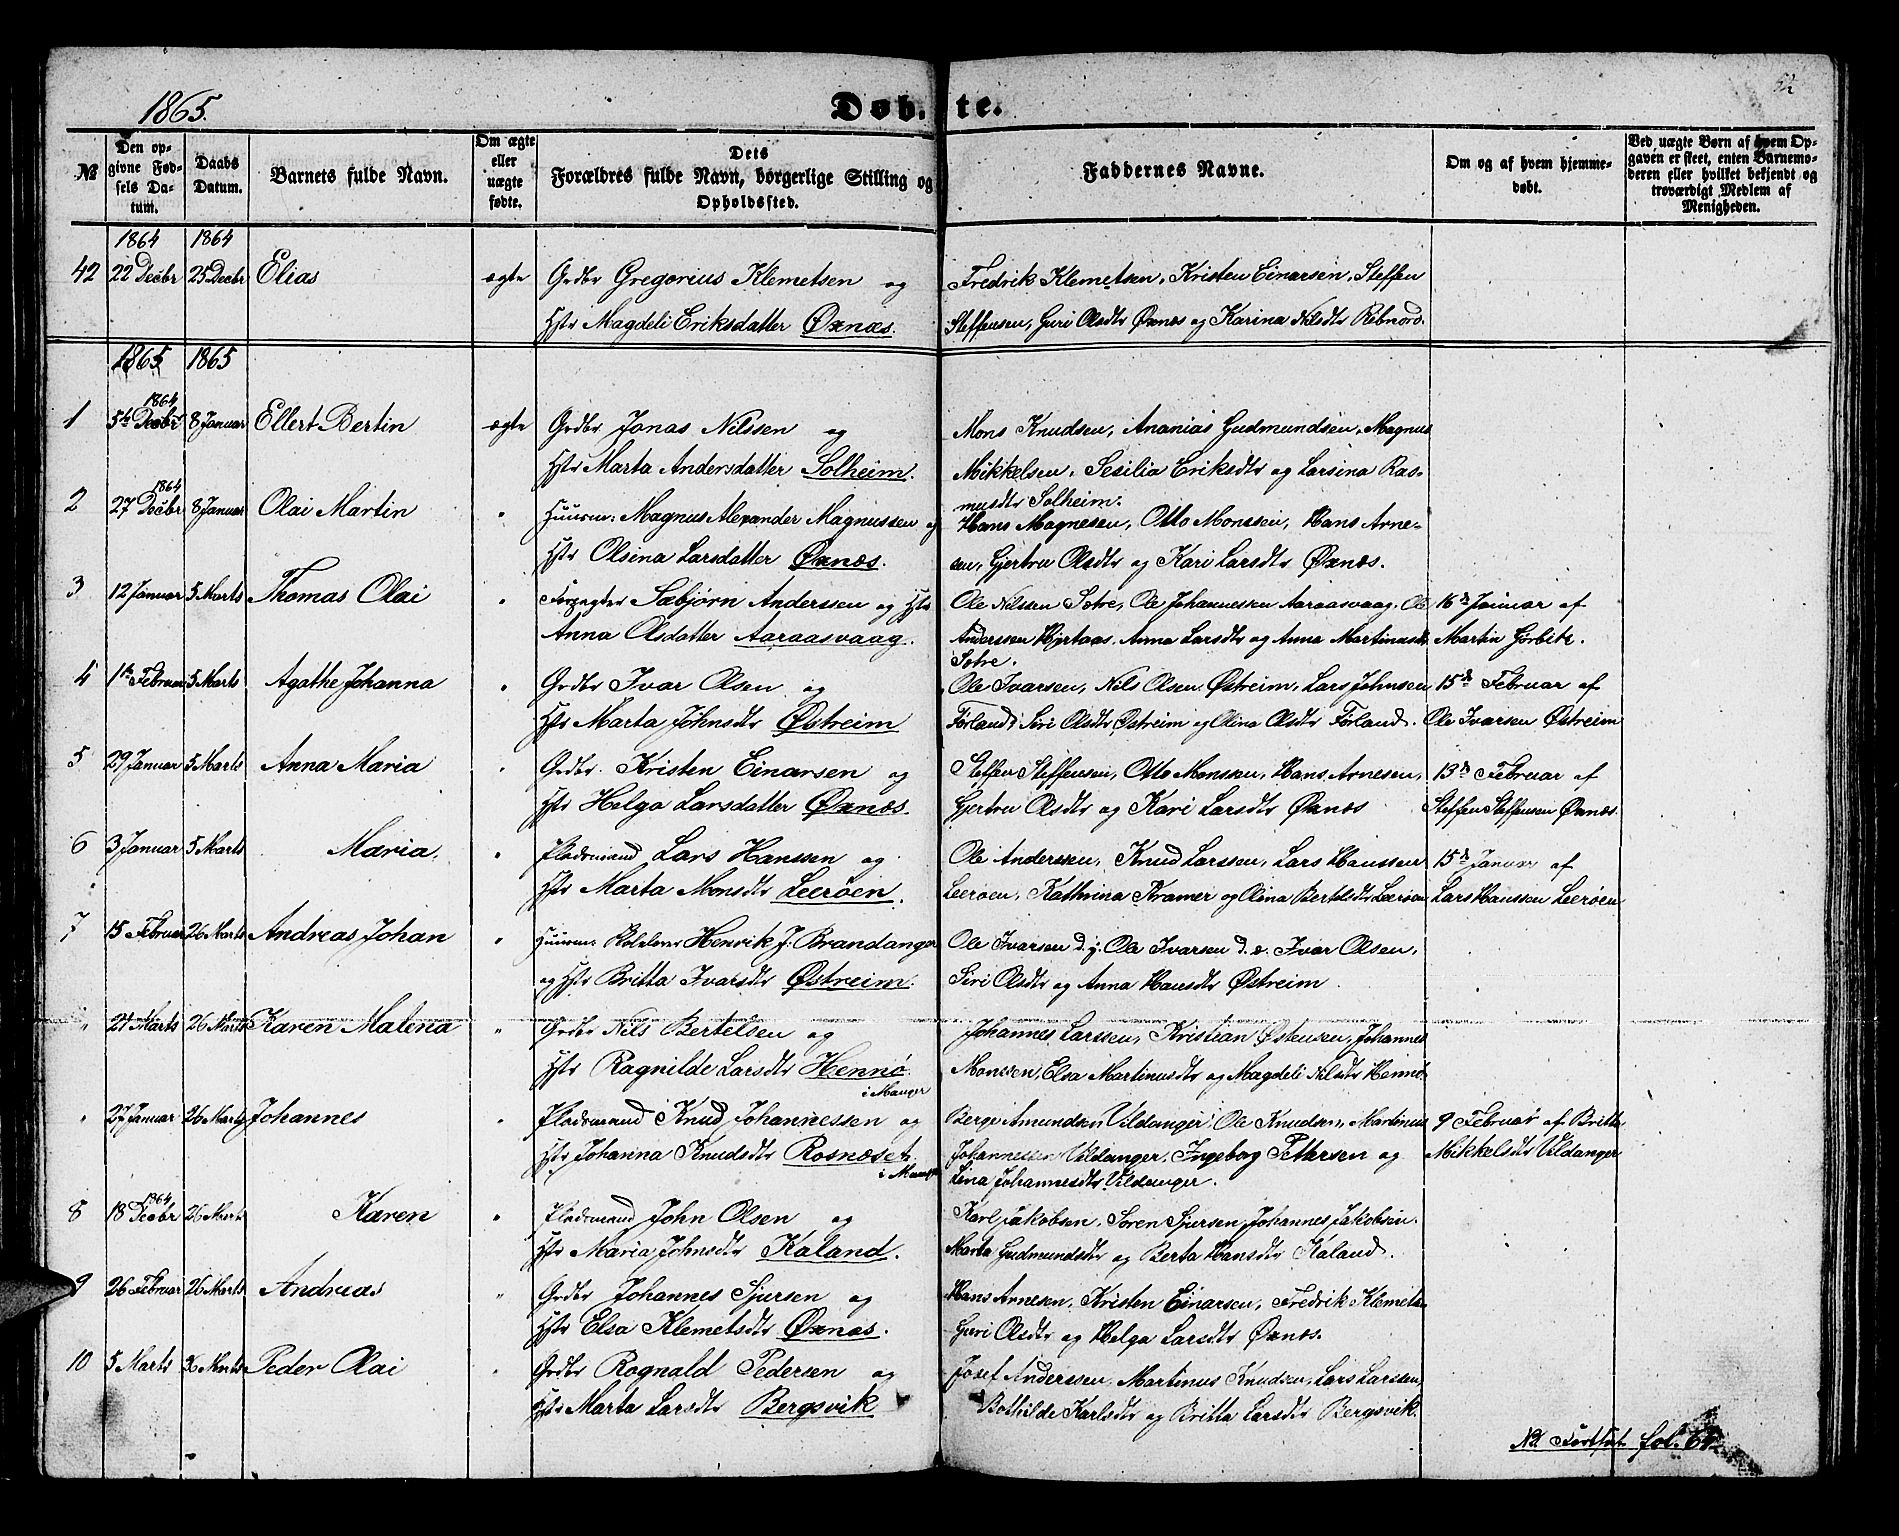 1865.
Døb. te.
52
№
Den op-
givne Fød-
sels Da-
tum.
Daabs
Datum.
Barnets fulde Navn.
Om ægte
eller
uægte
fødte.
Dets
Forældres fulde Navn, borgerlige Stilling og
Opholdssted.
Faddernes Navne.
Om og af hvem hjemme-
døbt.
Ved uægte Børn af hvem Op-
gaven er skeet, enten Barnemo-
deren eller hvilket bekjendt og
troværdigt Medlem af
Menigheden.
1864 1864
42 22 Decbr 25 Decbr Elias ægte Grdbr Gregorius Klemetsen og Fredrik Klemetsen, Kristen Einarsen, Steffen
Hstr Magdeli Eriksdatter Øxnæs. Steffensen, Guri Olsdtr Øxnæs og Karina Nilsdtr Rebnord.
1865 1865
1864
1 5te Decbr 8 Januar Ellert Bertin ægte Grdbr Jonas Nilssen og Mons Knudsen, Ananias Gudmundsen, Magnus
Hstr Marta Andersdatter Solheim. Mikkelsen, Sesilia Eriksdtr og Larsina Ras-
musdtr Solheim.
1864
2 27 Decbr 8 Januar Olai Martin " Huusm: Magnus Alexander Magnussen og Hans Magnesen, Otto Monssen, Hans Arne-
Hstr Olsina Larsdatter Øxnæs. sen, Gjertru Olsdtr og Kari Larsdtr Øxnæs.
3 12 Januar 5 Marts Thomas Olai " Forpagter Sæbjørn Anderssen og Hstr Ole Nilssen Sotre, Ole Johannessen Aaraasvaag, Ole 16de Januar af
Anna Olsdatter Aaraasvaag. Anderssen Hjertaas, Anna Larsdtr og Anna Martinusdtr Martin Gørbitz.
Sotre.
4 1ste Februar 5 Marts Agathe Johanna " Grdbr Ivar Olsen og Ole Ivarsen, Nils Olsen Østreim, Lars Johnsen 15de Februar af
Hstr Marta Johnsdtr Østreim Forland, Siri Olsdtr Østreim og Olina Olsdtr Forland. Ole Ivarsen Østreim
5 29 Januar 5 Marts Anna Maria " Grdbr. Kristen Einarsen og Steffen Steffensen, Otto Monssen, Hans Arnesen, 13de Februar af
Hstr Helga Larsdatter Øxnæs. Gjertru Olsdtr og Kari Larsdtr Øxnæs Steffen Steffensen Øxnæs
6 3 Januar 5 Marts Maria. " Pladsmand Lars Hanssen og Ole Anderssen, Knud Larssen, Lars Hanssen 15de Januar af
Hstr Marta Monsdtr Leerøen. Leerøen, Kathrina Kramer og Olina Bertelsdtr Leerøen Lars Hanssen Leerøen
7 15 Februar 26 Marts Andreas Johan " Huusm: Henrik J. Brandanger Ole Ivarsen d.y. Ole Ivarsen d.e. Ivar Olsen,
og Hstr Britta Ivarsdtr Østreim. Siri Olsdtr og Anna Hansdtr Østreim
" 21 Marts 26 Marts Karen Malena " Grdbr Nils Bertelsen og Johannes Larssen, Kristian Østensen, Johannes
Hstr Ragnilde Larsdtr Hennø. Monssen, Elsa Martinusdtr og Magdeli Nilsdtr Hennø
i Manger
" 27 Januar 26 Marts Johannes " Pladsmand Knud Johannessen og Berge Amundsen Vildanger, Ole Knudsen, Martinus 9 Februar af Britta
Hstr Johanna Knudsdtr Rosnæset. Johannesen Vildanger, Ingeborg Pettersen og Mikkelsdtr Vildanger
i Manger Lina Johannesdtr Vildanger.
1864
8 18 Decbr 26 Marts Karen " Pladsmand John Olsen og Karl Jakobsen, Søren Sjursen, Johannes Jakobsen.
Hstr Maria Johnsdtr Kaland. Marta Gudmundsdtr og Berta Hansdtr Kaland.
9 26 Februar 26 Marts Andreas " Grdbr Johannes Sjursen og Hans Arnesen, Kristen Einarsen, Fredrik Klemets.
Hstr Elsa Klemetsdtr Øxnæs. Guri Olsdtr og Helga Larsdtr Øxnæs.
10 5 Marts 26 Marts Peder Olai " Grdbr Rognald Pedersen og Josef Anderssen, Martinus Knudsen, Lars Larssen,
Hstr Marta Larsdtr Bergsvik Bothilde Karlsdtr og Britta Larsdtr Bergsvik.
fol.